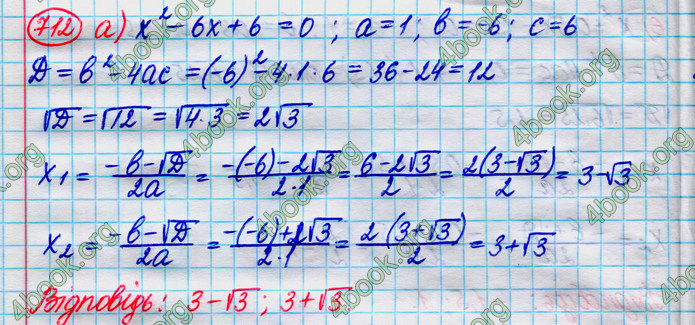 712 a) x² - 6x + 6 = 0 ; a = 1; b = -6; c = 6
D = b² - 4ac = (-6)² - 4·1·6 = 36 - 24 = 12
√D = √12 = √4·3 = 2√3
x₁ = (-b-√D)/2a = (-(-6)-2√3)/2·1 = (6-2√3)/2 = 2(3-√3)/2 = 3-√3
x₂ = (-b-√D)/2a = (-(-6)+2√3)/2·1 = 2(3+√3)/2 = 3+√3
Відповідь: 3-√3 ; 3+√3
4book.org
4book.org
4book.org
4book.org
4book.org
4book.org
4book.org